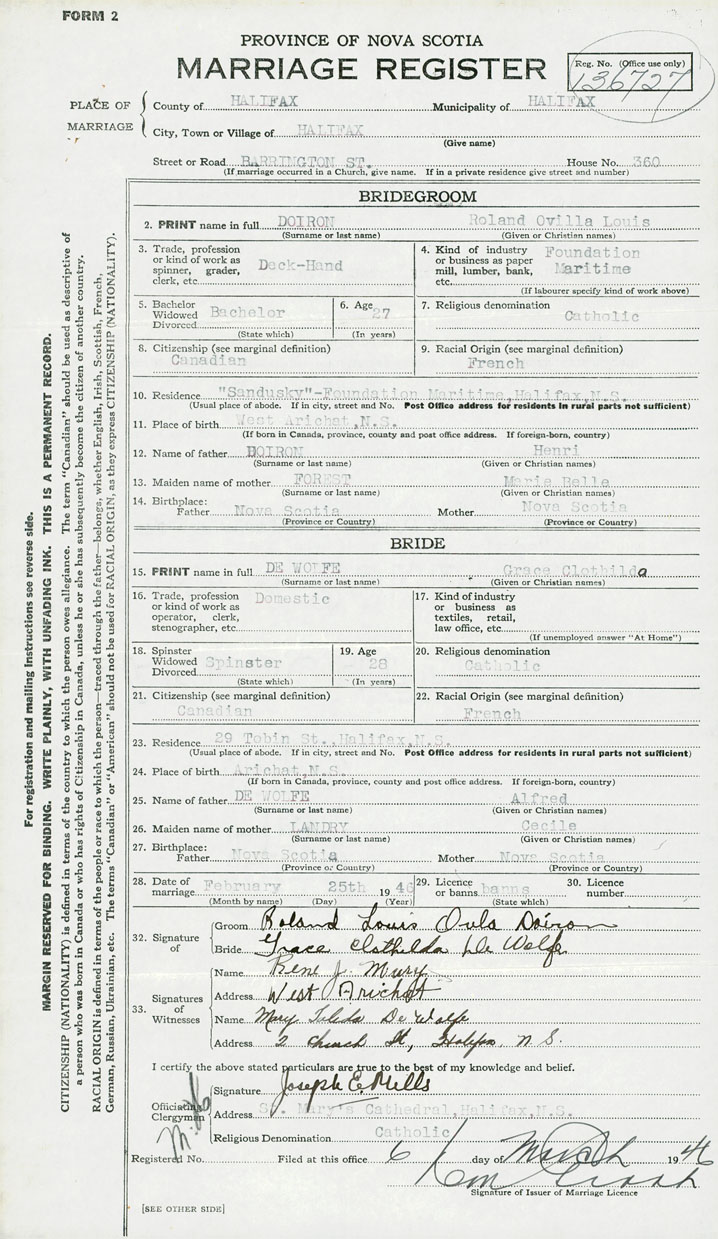 FORM 2
PROVINCE OF NOVA SCOTIA
MARRIAGE REGISTER
Reg. No. (Office use only)
136727
PLACE OF MARRIAGE
County of HALIFAX Municipality of HALIFAX
City, Town or Village of HALIFAX
(Give name)
Street or Road BARRINGTON ST. House No. 360
(If marriage occurred in a Church, give name. If in a private residence give street and number)
BRIDEGROOM
2. PRINT name in full DOIRON Roland Ovilla Louis
(Surname or last name) (Given or Christian names)
3. Trade, profession or kind of work as spinner, grader, clerk, etc. Deck-Hand
4. Kind of industry or business as paper mill, lumber, bank, etc. Foundation Maritime
(If labourer specify kind of work above)
5. Bachelor Widowed Divorced Bachelor
(State which)
6. Age 27
(In years)
7. Religious denomination
Catholic
8. Citizenship (see marginal definition)
Canadian
9. Racial Origin (see marginal definition)
French
10. Residence "Sandusky"-Foundation Maritime, Halifax, N.S.
(Usual place of abode. If in city, street and No. Post Office address for residents in rural parts not sufficient)
11. Place of birth West Arichat, N.S.
(If born in Canada, province, county and post office address. If foreign-born, country)
12. Name of father DOIRON Henri
(Surname or last name) (Given or Christian names)
13. Maiden name of mother FOREST Marie Belle
(Surname or last name) (Given or Christian names)
14. Birthplace:
Father Nova Scotia Mother Nova Scotia
(Province or Country) (Province or Country)
BRIDE
15. PRINT name in full DE WOLFE Grace Clothilda
(Surname or last name) (Given or Christian names)
16. Trade, profession or kind of work as operator, clerk, stenographer, etc. Domestic
17. Kind of industry or business as textiles, retail, law office, etc.
(If unemployed answer "At Home")
18. Spinster Widowed Divorced Spinster
(State which)
19. Age 28
(In years)
20. Religious denomination
Catholic
21. Citizenship (see marginal definition)
Canadian
22. Racial Origin (see marginal definition)
French
23. Residence 29 Tobin St., Halifax, N.S.
(Usual place of abode. If in city, street and No. Post Office address for residents in rural parts not sufficient)
24. Place of birth Arichat, N.S.
(If born in Canada, province, county and post office address. If foreign-born, country)
25. Name of father DE WOLFE Alfred
(Surname or last name) (Given or Christian names)
26. Maiden name of mother LANDRY Cecile
(Surname or last name) (Given or Christian names)
27. Birthplace:
Father Nova Scotia Mother Nova Scotia
(Province or Country) (Province or Country)
28. Date of marriage February 25th 1946
(Month by name) (Day) (Year)
29. Licence or banns banns
(State which)
30. Licence number
32. Signature of
Groom Roland Louis Ovila Doiron
Bride Grace Clothilda De Wolfe
33. Signatures of Witnesses
Name Rene J. Mury
Address West Arichat
Name Mary De Wolfe
Address 2 Church St, Halifax, N.S.
I certify the above stated particulars are true to the best of my knowledge and belief.
Officiating Clergyman
Signature Joseph E. Mills
Address St. Mary's Cathedral, Halifax, N.S.
Religious Denomination Catholic
Registered No. Filed at this office 6 day of March 1946
Signature of Issuer of Marriage Licence
[SEE OTHER SIDE]
For registration and mailing instructions see reverse side.
MARGIN RESERVED FOR BINDING. WRITE PLAINLY, WITH UNFADING INK. THIS IS A PERMANENT RECORD.
CITIZENSHIP (NATIONALITY) is defined in terms of the country to which the person owes allegiance. The term "Canadian" should be used as descriptive of
a person who was born in Canada or who has rights of Citizenship in Canada, unless he or she has subsequently become the citizen of another country.
RACIAL ORIGIN is defined in terms of the people or race to which the person—traced through the father—belongs, whether English, Irish, Scottish, French,
German, Russian, Ukrainian, etc. The terms "Canadian" or "American" should not be used for RACIAL ORIGIN, as they express CITIZENSHIP (NATIONALITY).